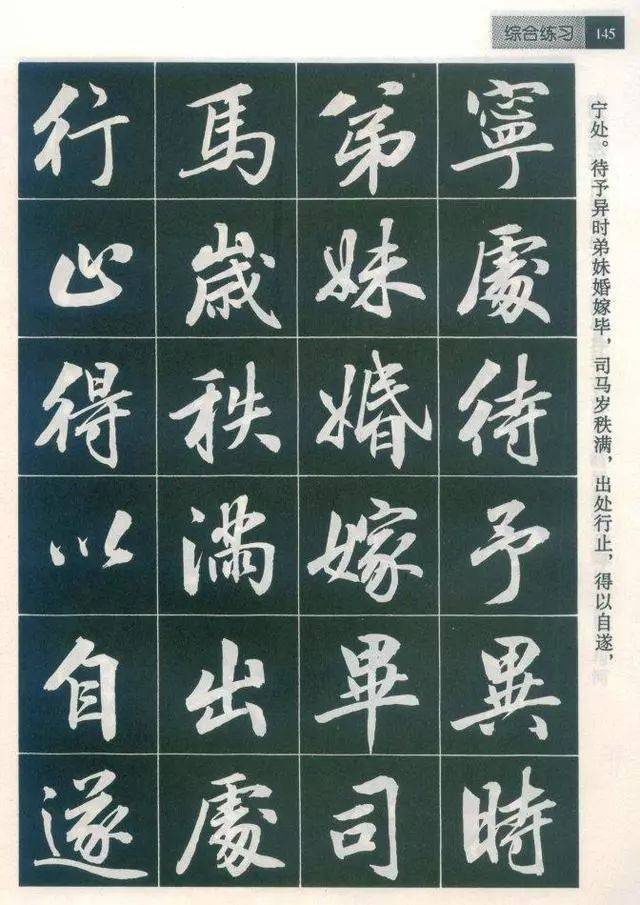 综合练习 145
宁处。待予异时弟妹婚嫁毕，司马岁秩满，出处行止，得以自遂，
寧處待予異時
弟妹婚嫁畢司
馬歲秩滿出處
行止得以自遂